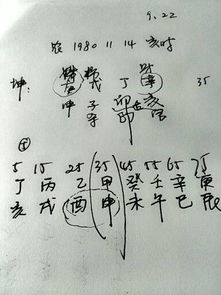 9.22
农 1980 11 14 亥时
坤: 戊 丁 辛 35
申 子 卯 亥
5 15 25 35 45 55 65 75
丁 丙 乙 甲 癸 壬 辛 庚
亥 戌 酉 申 未 午 巳 辰